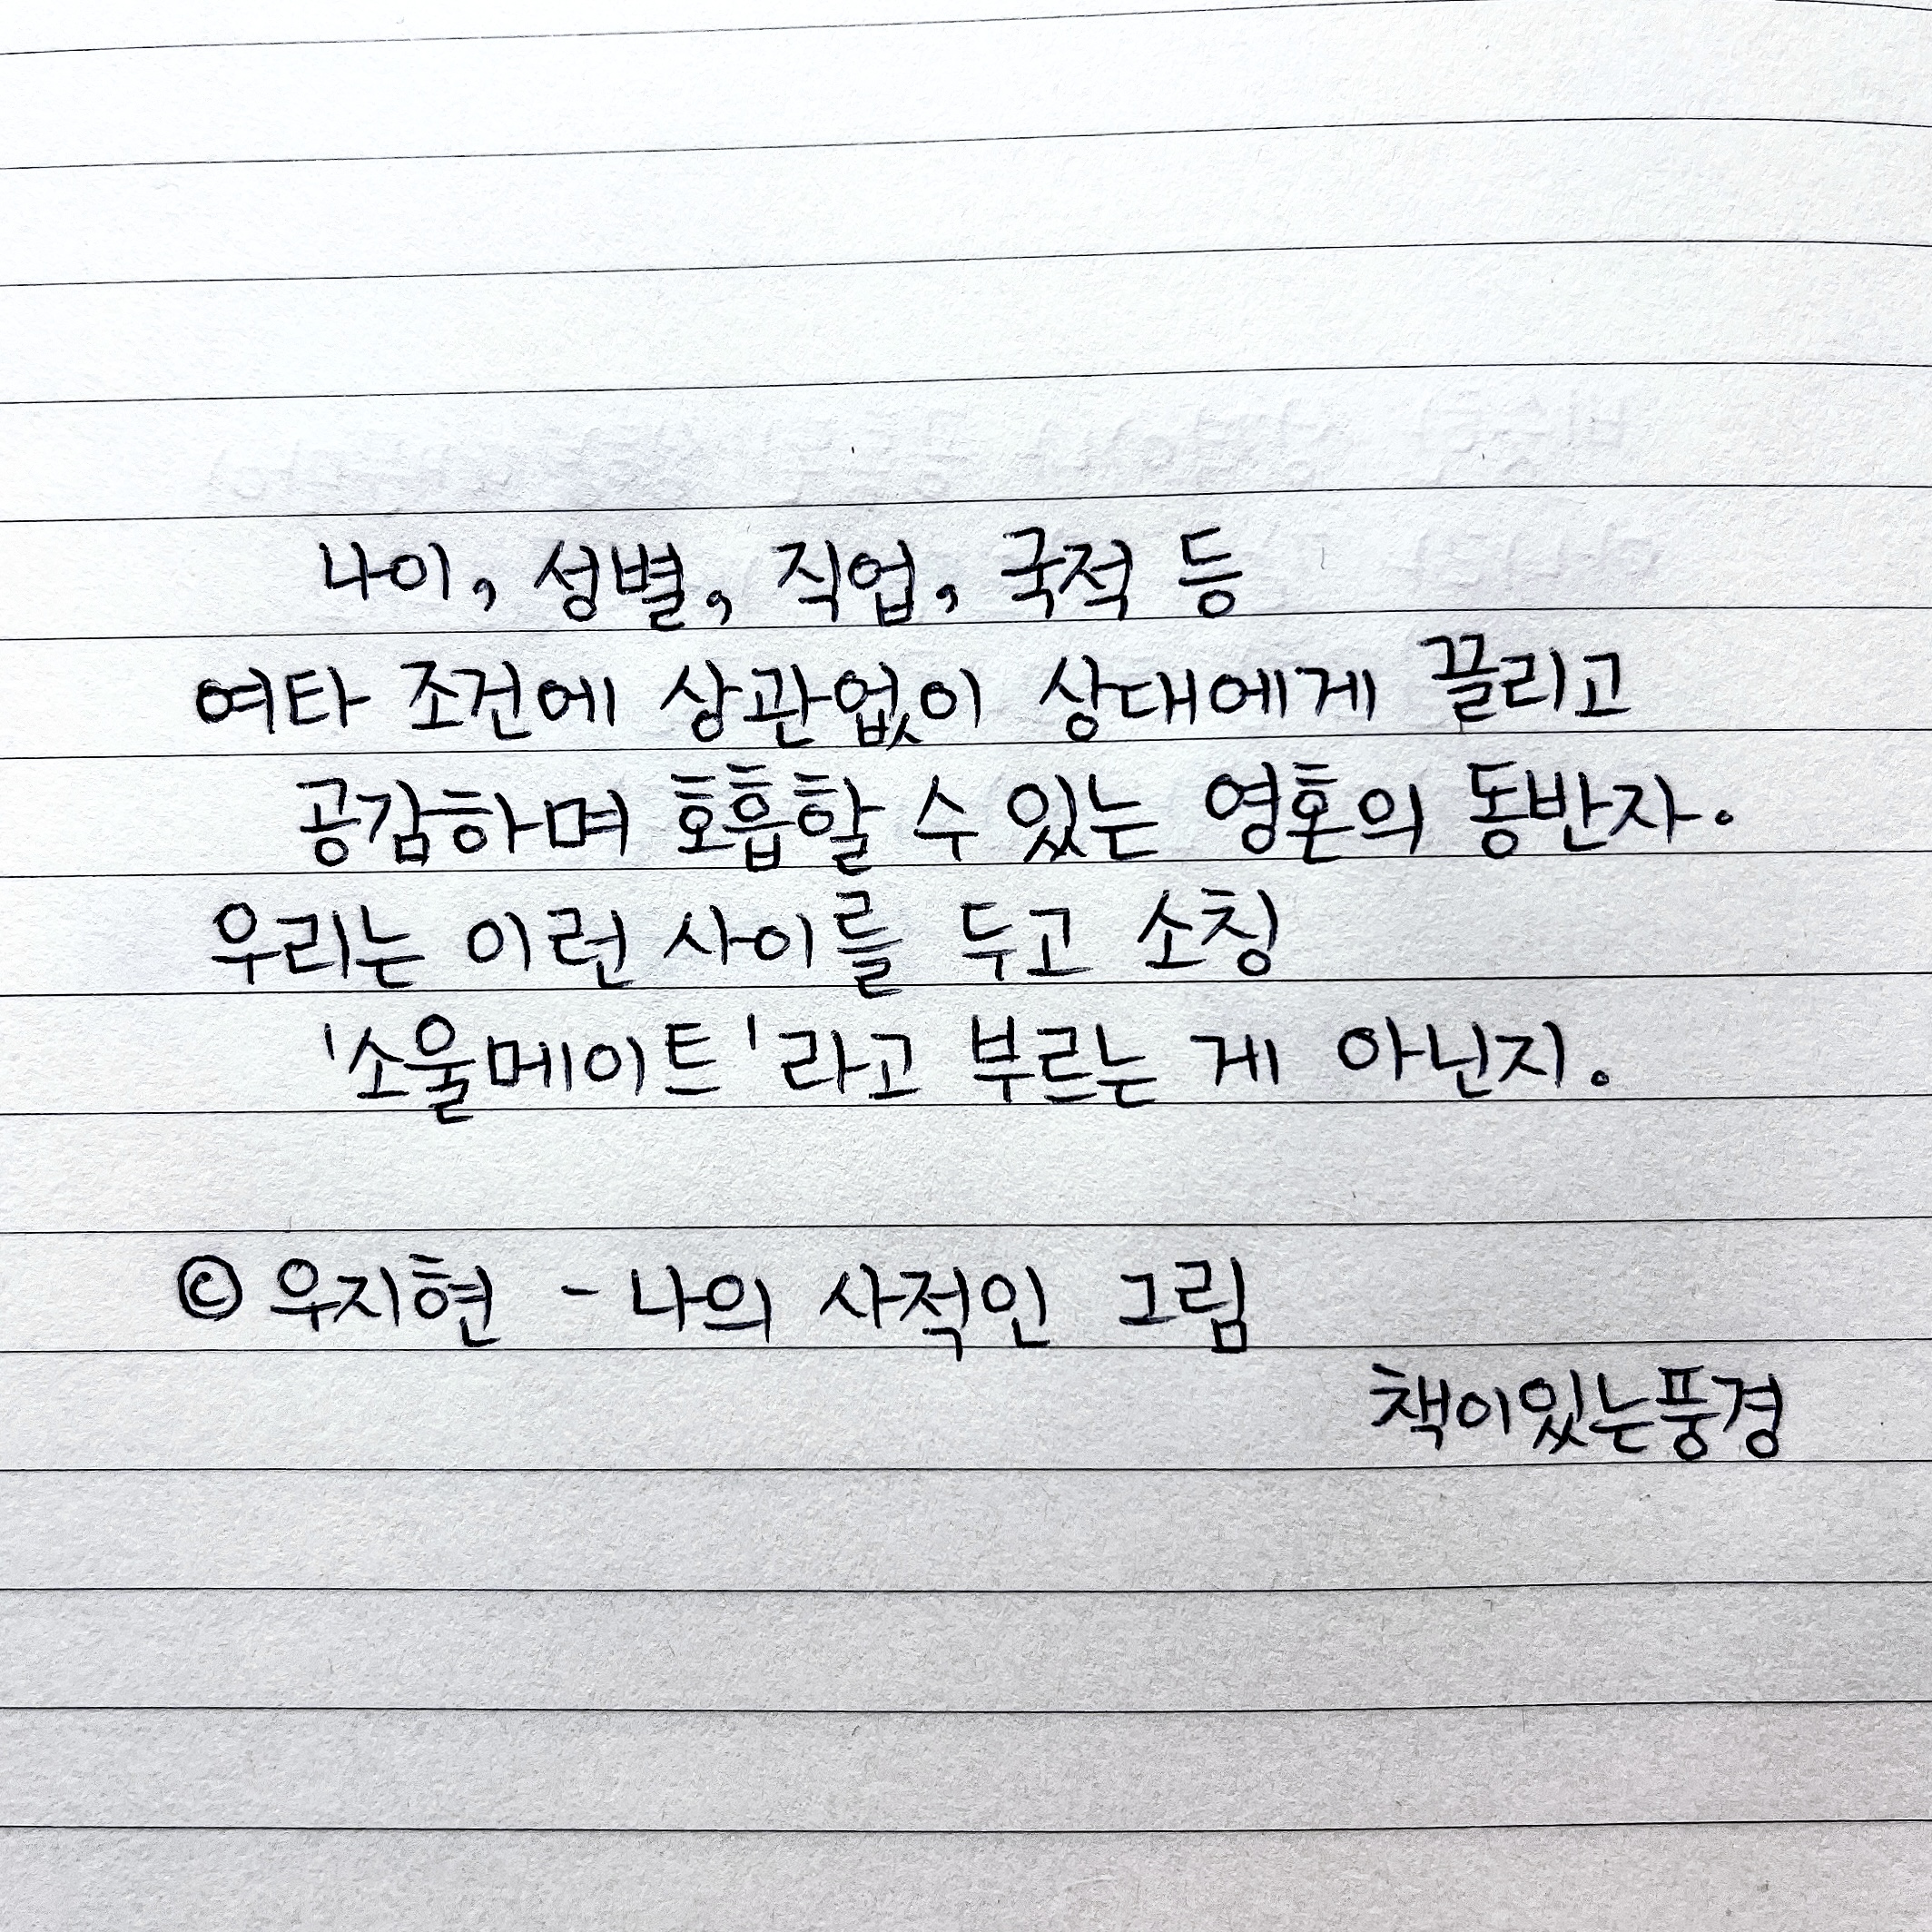 나이, 성별, 직업, 국적 등
여타 조건에 상관없이 상대에게 끌리고
공감하며 호흡할 수 있는 영혼의 동반자.
우리는 이런 사이를 두고 소칭
'소울메이트'라고 부르는 게 아닌지.
© 우지현 - 나의 사적인 그림
책이있는풍경